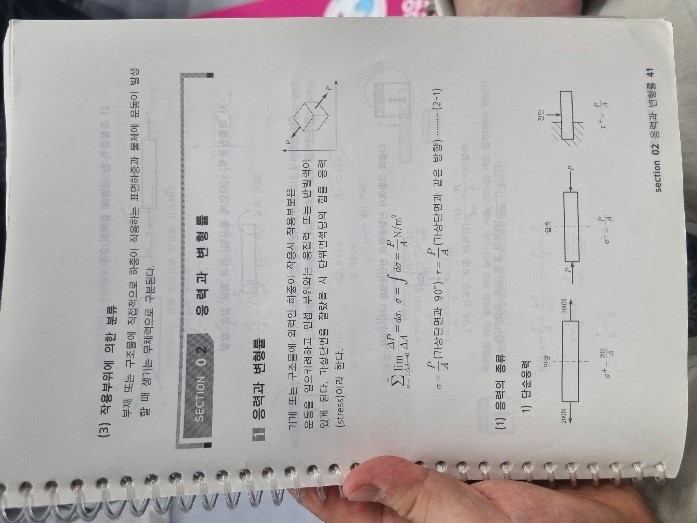 (3) 작용부위에 의한 분류
부재 또는 구조물에 직접적으로 하중이 작용하는 표면하중과 물체에 운동이 발생
할 때 생기는 무체력으로 구분된다.
SECTION 02 응력과 변형률
1 응력과 변형률
기계 또는 구조물에 외력인 하중이 작용시 작용부분은
운동을 일으키려하고 인접 부위와는 응집력 또는 반발력이
있게 된다. 가상단면을 잘랐을 시 단위면적당의 힘을 응력
(stress)이라 한다.
P
P
∑ lim ΔP/ΔA = dσ, σ = ∫ dσ = P/A N/m²
σ = P/A (가상단면과 90°) τ = P/A (가상단면과 같은 방향) ········ (2-1)
(1) 응력의 종류
1) 단순응력
인장 압축 전단
20N 20N P P
σ⁺ = 20/A σ⁻ = P/A τ⁺ = P/A
section 02 응력과 변형률 41